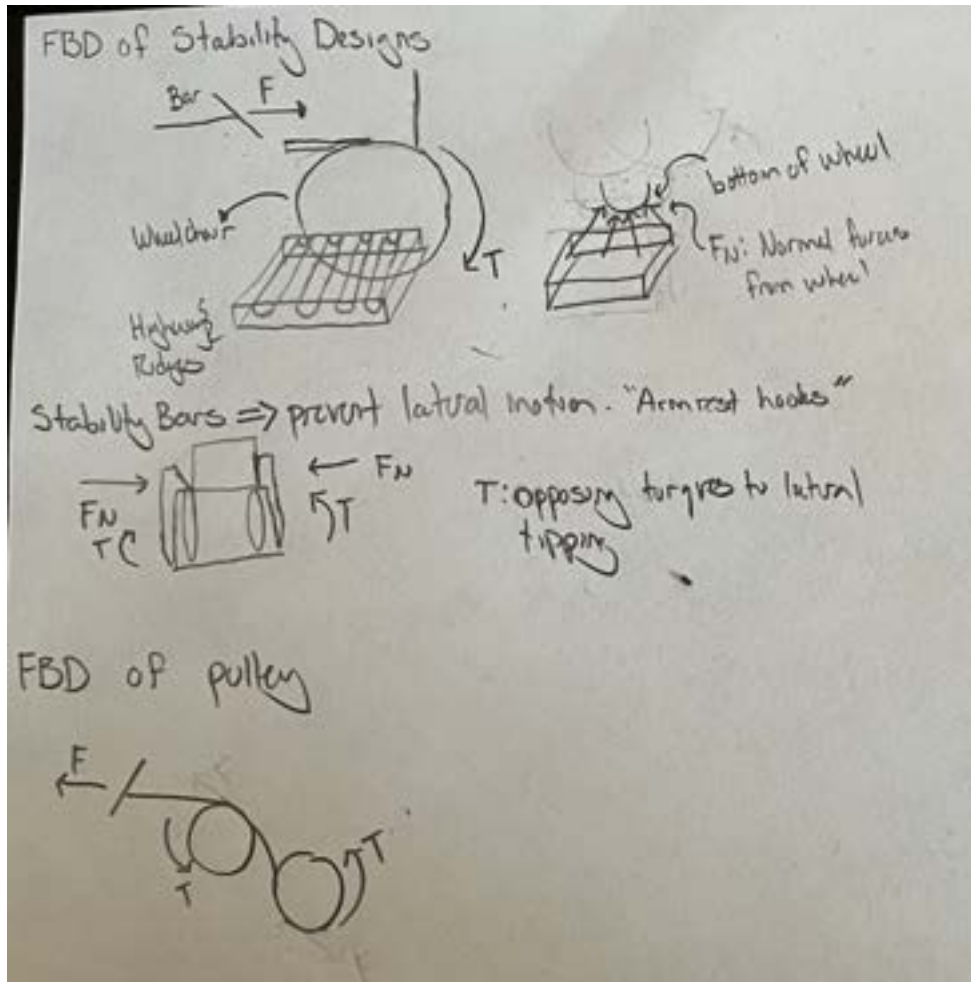 FBD of Stability Designs
Bar
F
Wheelchair
T
Highway
Ridges
bottom of wheel
FN: Normal force
from wheel
Stability Bars => prevent lateral motion. "Armrest hooks"
FN
T
FN
T
T: opposing torques to lateral
tipping
FBD of pulley
F
T
T